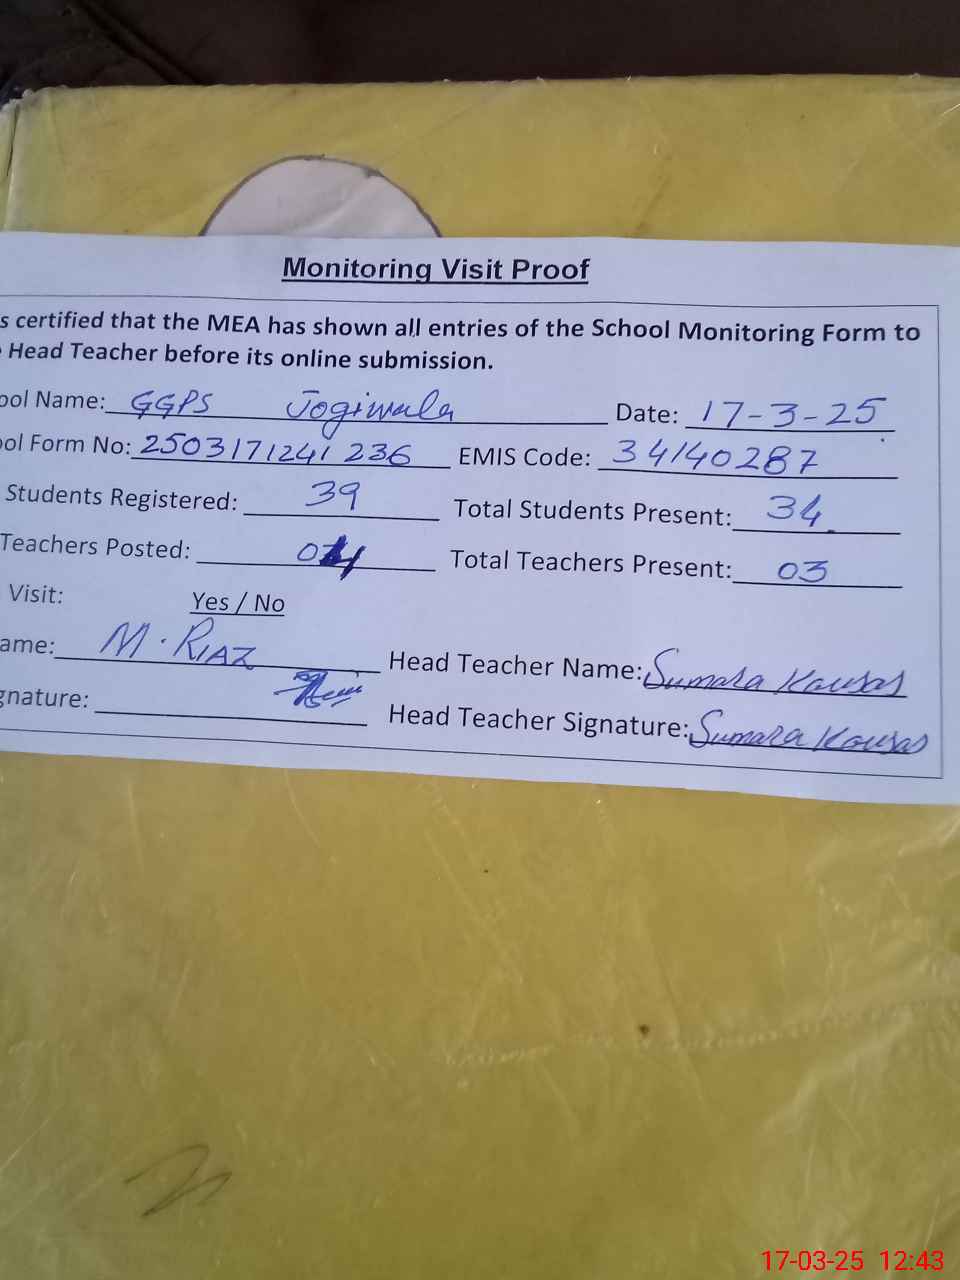 Monitoring Visit Proof
s certified that the MEA has shown all entries of the School Monitoring Form to
Head Teacher before its online submission.
ool Name: GGPS Jogiwala Date: 17-3-25
ol Form No: 2503171241 236 EMIS Code: 34140287
Students Registered: 39 Total Students Present: 34
Teachers Posted: 04 Total Teachers Present: 03
Visit: Yes / No
ame: M. RIAZ Head Teacher Name: Sumara Kausar
gnature: Head Teacher Signature: Sumara Kausar
17-03-25 12:43